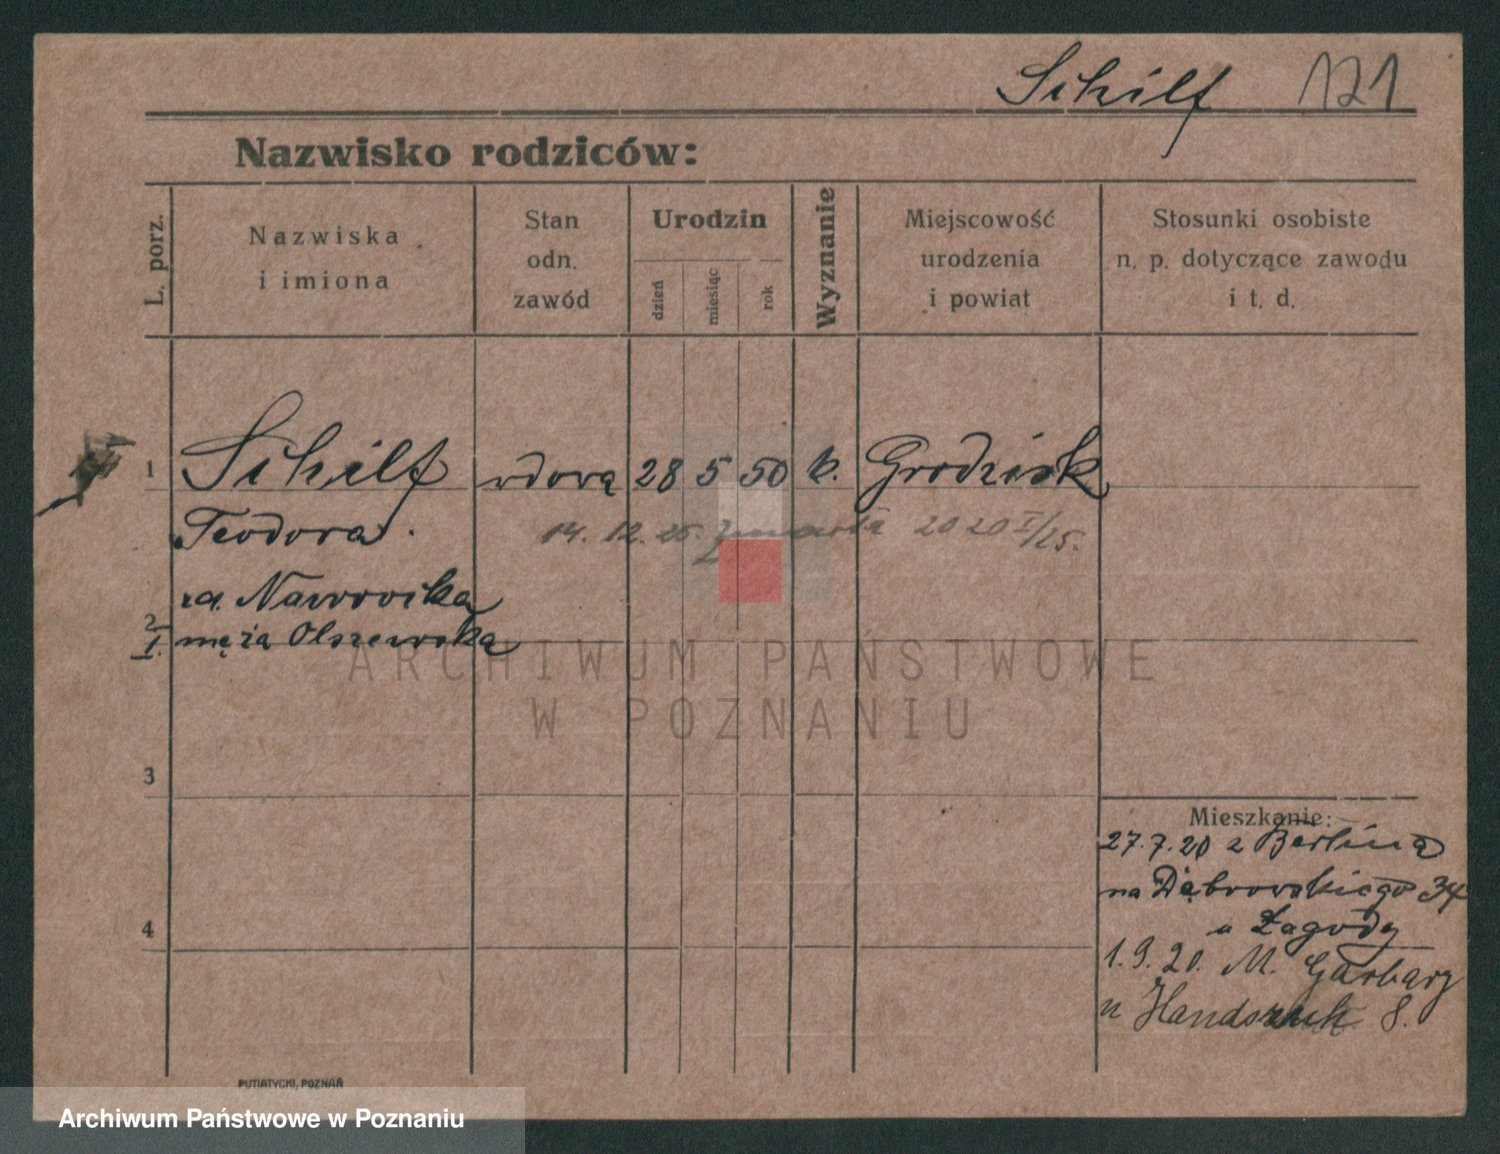 Schilf 121
Nazwisko rodziców:
L. porz.
Nazwiska
i imiona
Stan
odn.
zawód
Urodzin
dzień
miesiąc
rok
Wyznanie
Miejscowość
urodzenia
i powiat
Stosunki osobiste
n. p. dotyczące zawodu
i t. d.
1 Schilf wdową 28 5 50 k. Grodzisk
Teodora
14. 12. 25. 20 20 I/25.
2
I. męża Olszewska
ARCHIWUM PAŃSTWOWE
W POZNANIU
3
Mieszkanie:
27.7.20 z Berlina
na Dąbrowskiego 34
u Łagody
4
1.9.20. M. Garbary
u 8.
PUTIATYCKI, POZNAŃ
Archiwum Państwowe w Poznaniu